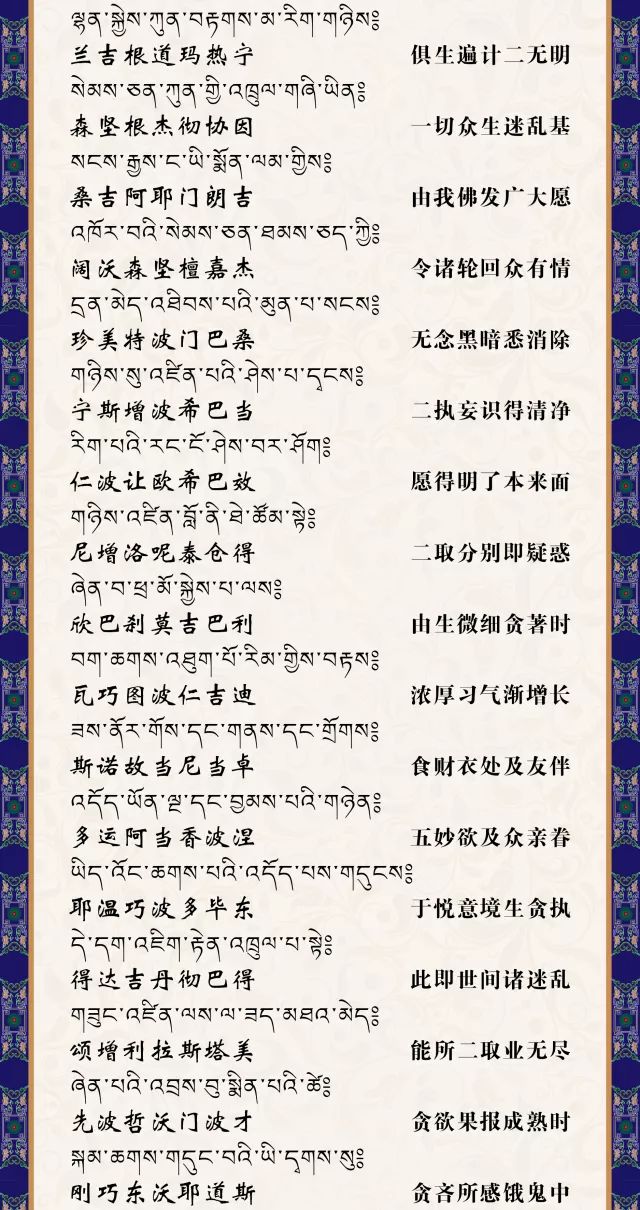 ལྷན་སྐྱེས་ཀུན་བརྟགས་མ་རིག་གཉིས༔
兰吉根道玛热宁 俱生遍计二无明
སེམས་ཅན་ཀུན་གྱི་འཁྲུལ་གཞི་ཡིན༔
森坚根杰彻协因 一切众生迷乱基
སངས་རྒྱས་ང་ཡི་སྨོན་ལམ་གྱིས༔
桑吉阿耶门朗吉 由我佛发广大愿
འཁོར་བའི་སེམས་ཅན་ཐམས་ཅད་ཀྱི༔
阔沃森坚檀嘉杰 令诸轮回众有情
དྲན་མེད་འཐིབས་པའི་མུན་པ་སངས༔
珍美特波门巴桑 无念黑暗悉消除
གཉིས་སུ་འཛིན་པའི་ཤེས་པ་དྭངས༔
宁斯增波希巴当 二执妄识得清净
རིག་པའི་རང་ངོ་ཤེས་བར་ཤོག༔
仁波让欧希巴效 愿得明了本来面
གཉིས་འཛིན་བློ་ནི་ཐེ་ཚོམ་སྟེ༔
尼增洛呢泰仓得 二取分别即疑惑
ཞེན་བ་ཕྲ་མོ་སྐྱེས་པ་ལས༔
欣巴刹莫吉巴利 由生微细贪著时
བག་ཆགས་འཐུག་པོ་རིམ་གྱིས་བརྟས༔
瓦巧图波仁吉迪 浓厚习气渐增长
ཟས་ནོར་གོས་དང་གནས་དང་གྲོགས༔
斯诺故当尼当卓 食财衣处及友伴
འདོད་ཡོན་ལྔ་དང་བྱམས་པའི་གཉེན༔
多运阿当香波涅 五妙欲及众亲眷
ཡིད་འོང་ཆགས་པའི་འདོད་པས་གདུངས༔
耶温巧波多毕东 于悦意境生贪执
དེ་དག་འཇིག་རྟེན་འཁྲུལ་པ་སྟེ༔
得达吉丹彻巴得 此即世间诸迷乱
གཟུང་འཛིན་ལས་ལ་ཟད་མཐའ་མེད༔
颂增利拉斯塔美 能所二取业无尽
ཞེན་པའི་འབྲས་བུ་སྨིན་པའི་ཚེ༔
先波哲沃门波才 贪欲果报成熟时
སྐམ་ཆགས་གདུང་བའི་ཡི་དྭགས་སུ༔
刚巧东沃耶道斯 贪吝所感饿鬼中